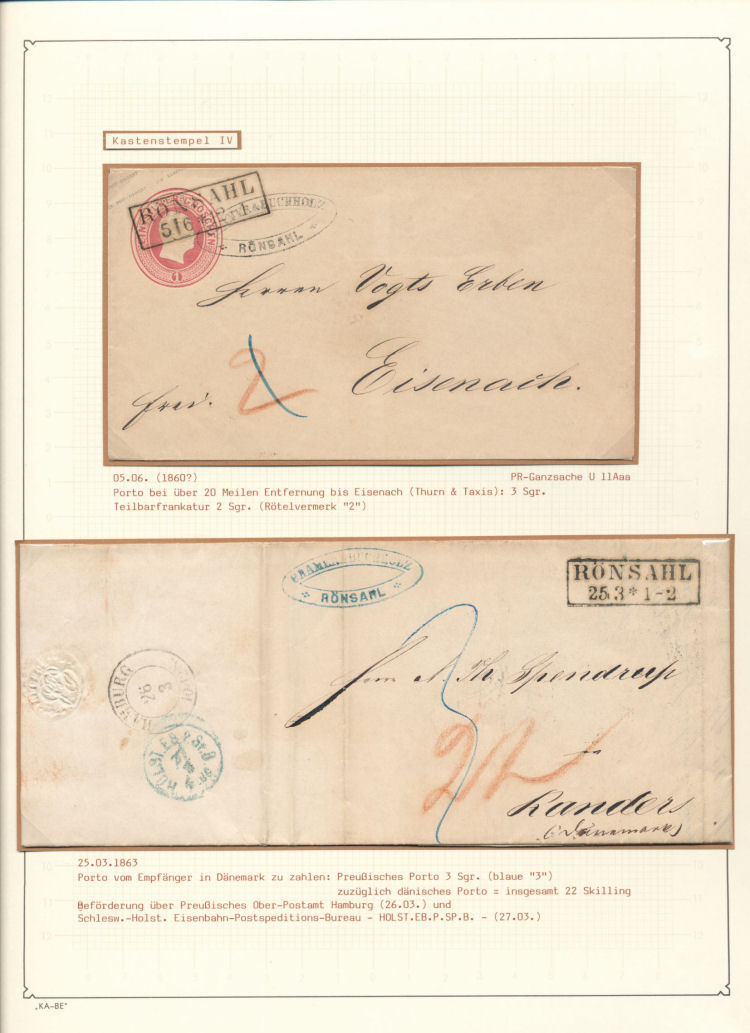 Kastenstempel IV
RÖNSAHL
5 6 * 2-
& BUCHHOLZ
RÖNSAHL
EIN SILBERGROSCHEN
1
Herren Vogts Erben
2
Eisenach.
frei.
05.06. (1860?)
PR-Ganzsache U 11Aaa
Porto bei über 20 Meilen Entfernung bis Eisenach (Thurn & Taxis): 3 Sgr.
Teilbarfrankatur 2 Sgr. (Rötelvermerk "2")
KRAMER & BUCHHOLZ
RÖNSAHL
RÖNSAHL
25.3 * 1-2
HAMBURG
26
3
Th. Spendrup
3
22
Randers
(Dänemark)
25.03.1863
Porto vom Empfänger in Dänemark zu zahlen: Preußisches Porto 3 Sgr. (blaue "3")
zuzüglich dänisches Porto = insgesamt 22 Skilling
Beförderung über Preußisches Ober-Postamt Hamburg (26.03.) und
Schlesw.-Holst. Eisenbahn-Postspeditions-Bureau - HOLST.EB.P.SP.B. - (27.03.)
„KA-BE"